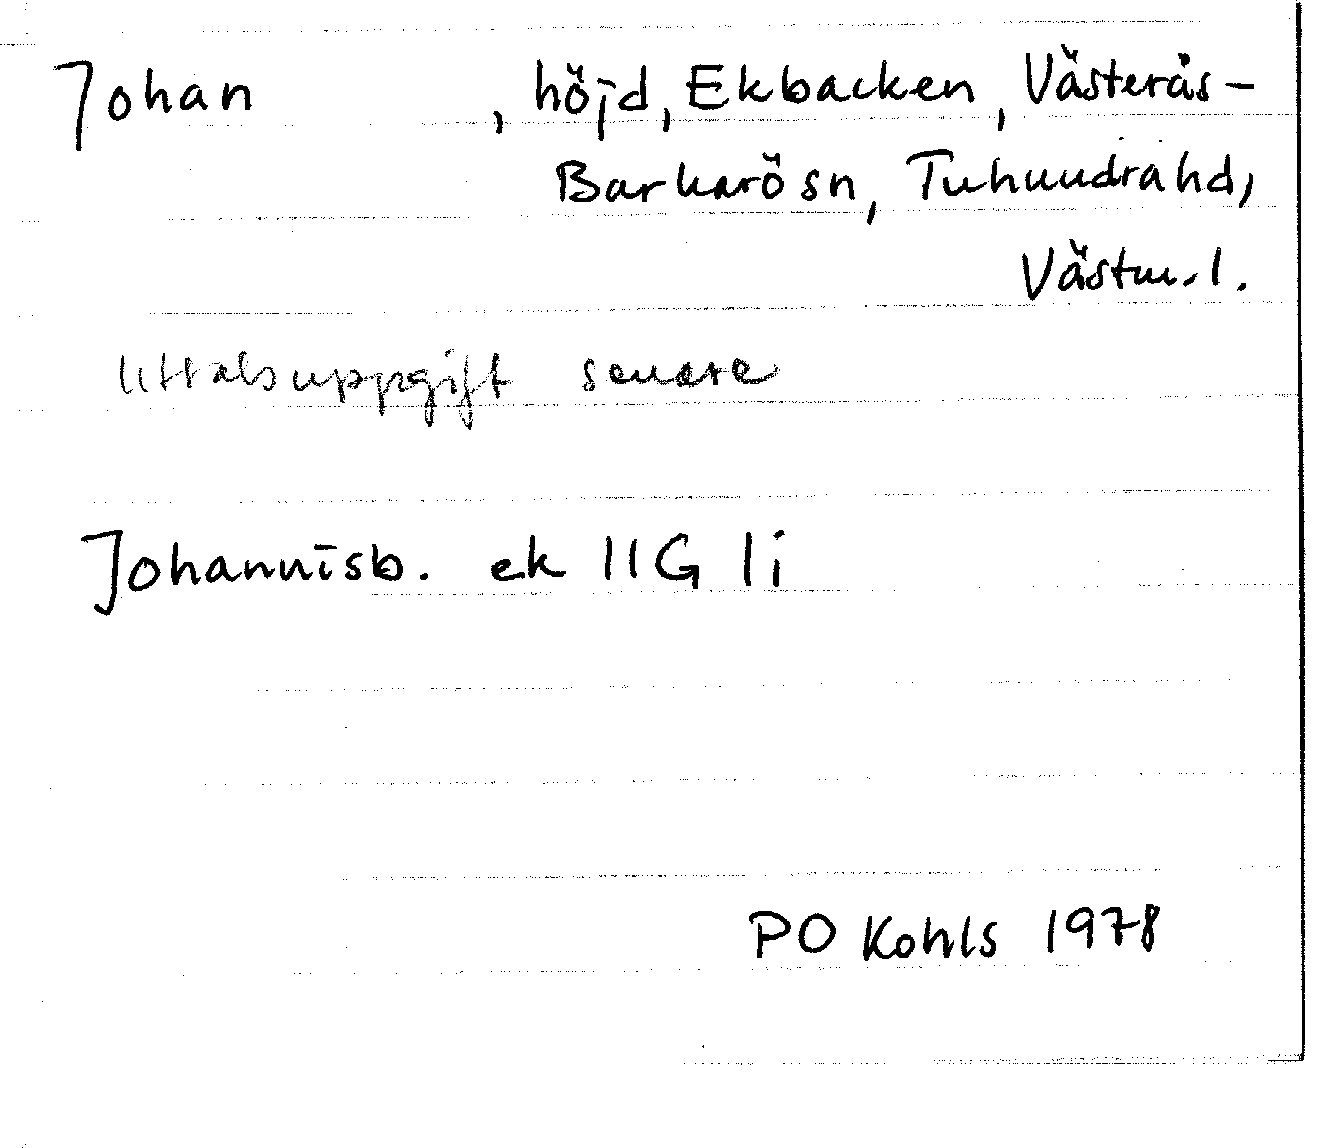 Johan , höjd, Ekbacken, Västerås-
Barkarö sn, Tuhundra hd,
Västm. l.
Uttalsuppgift senare
Johannisb. ek 11G 1i
PO Kohls 1978